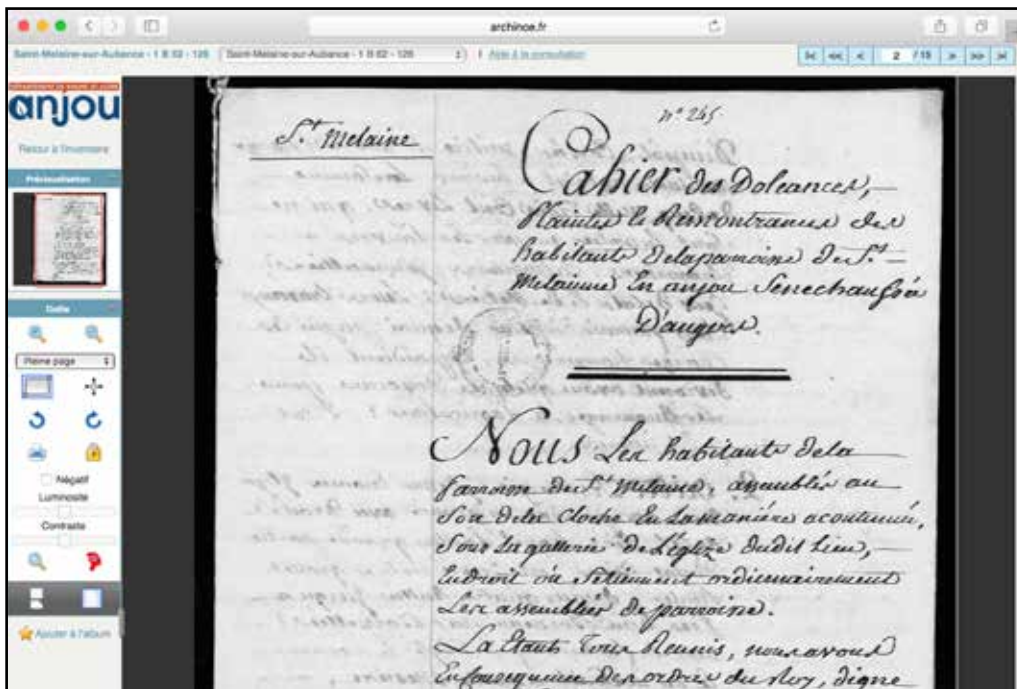 archinoe.fr
Saint-Melaine-sur-Aubance - 1 B 62 - 126
Saint-Melaine-sur-Aubance - 1 B 62 - 126
Aide à la consultation
2 / 15
anjou
Retour à l'inventaire
Prévisualisation
Outils
Pleine page
Négatif
Luminosité
Contraste
Ajouter à l'album
n° 245
St. Melaine
Cahier des Doleances,
Plaintes et Remontrances des
habitants delaparroisse de St.
Melainne En anjou Senechaussée
D'angers.
Nous Les habitants dela
parroisse de St. Melaine, assemblés au
Son dela Cloche En Lamanière acoutumée,
Sous La gallerie de L'église dudit Lieu,
Endroit où Setiennent ordinairement
Les assemblées de parroisse.
La Etants Tous Reunis, nous avons
En Consequence des ordres du Roy, digne